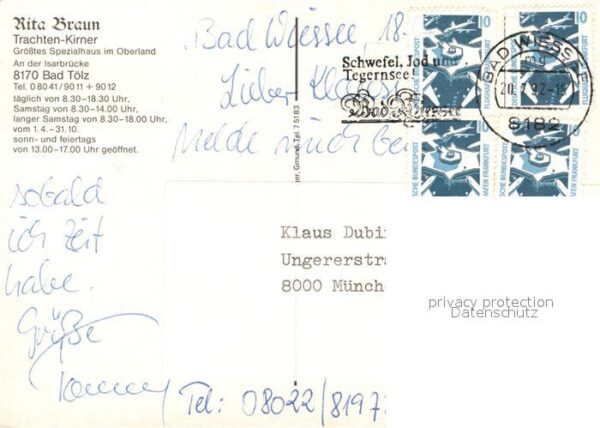 Rita Braun
Trachten-Kirner
Größtes Spezialhaus im Oberland
An der Isarbrücke
8170 Bad Tölz
Tel. 0 80 41 / 90 11 + 90 12
täglich von 8.30 - 18.30 Uhr,
Samstag von 8.30 - 14.00 Uhr,
langer Samstag von 8.30 - 18.00 Uhr,
vom 1.4. - 31.10.
sonn- und feiertags
von 13.00 - 17.00 Uhr geöffnet.
Bad Wiessee, 18.
Lieber Klaus
Melde mich bei
sobald
ich Zeit
habe.
Grüße
Tel: 08022/8197
Schwefel, Jod und
Tegernsee
Bad Wiessee
BAD WIESSEE
8182
10
10
10
FLUGHAFEN FRANKFURT
Klaus Dubin
Ungererstra
8000 Münche
privacy protection
Datenschutz